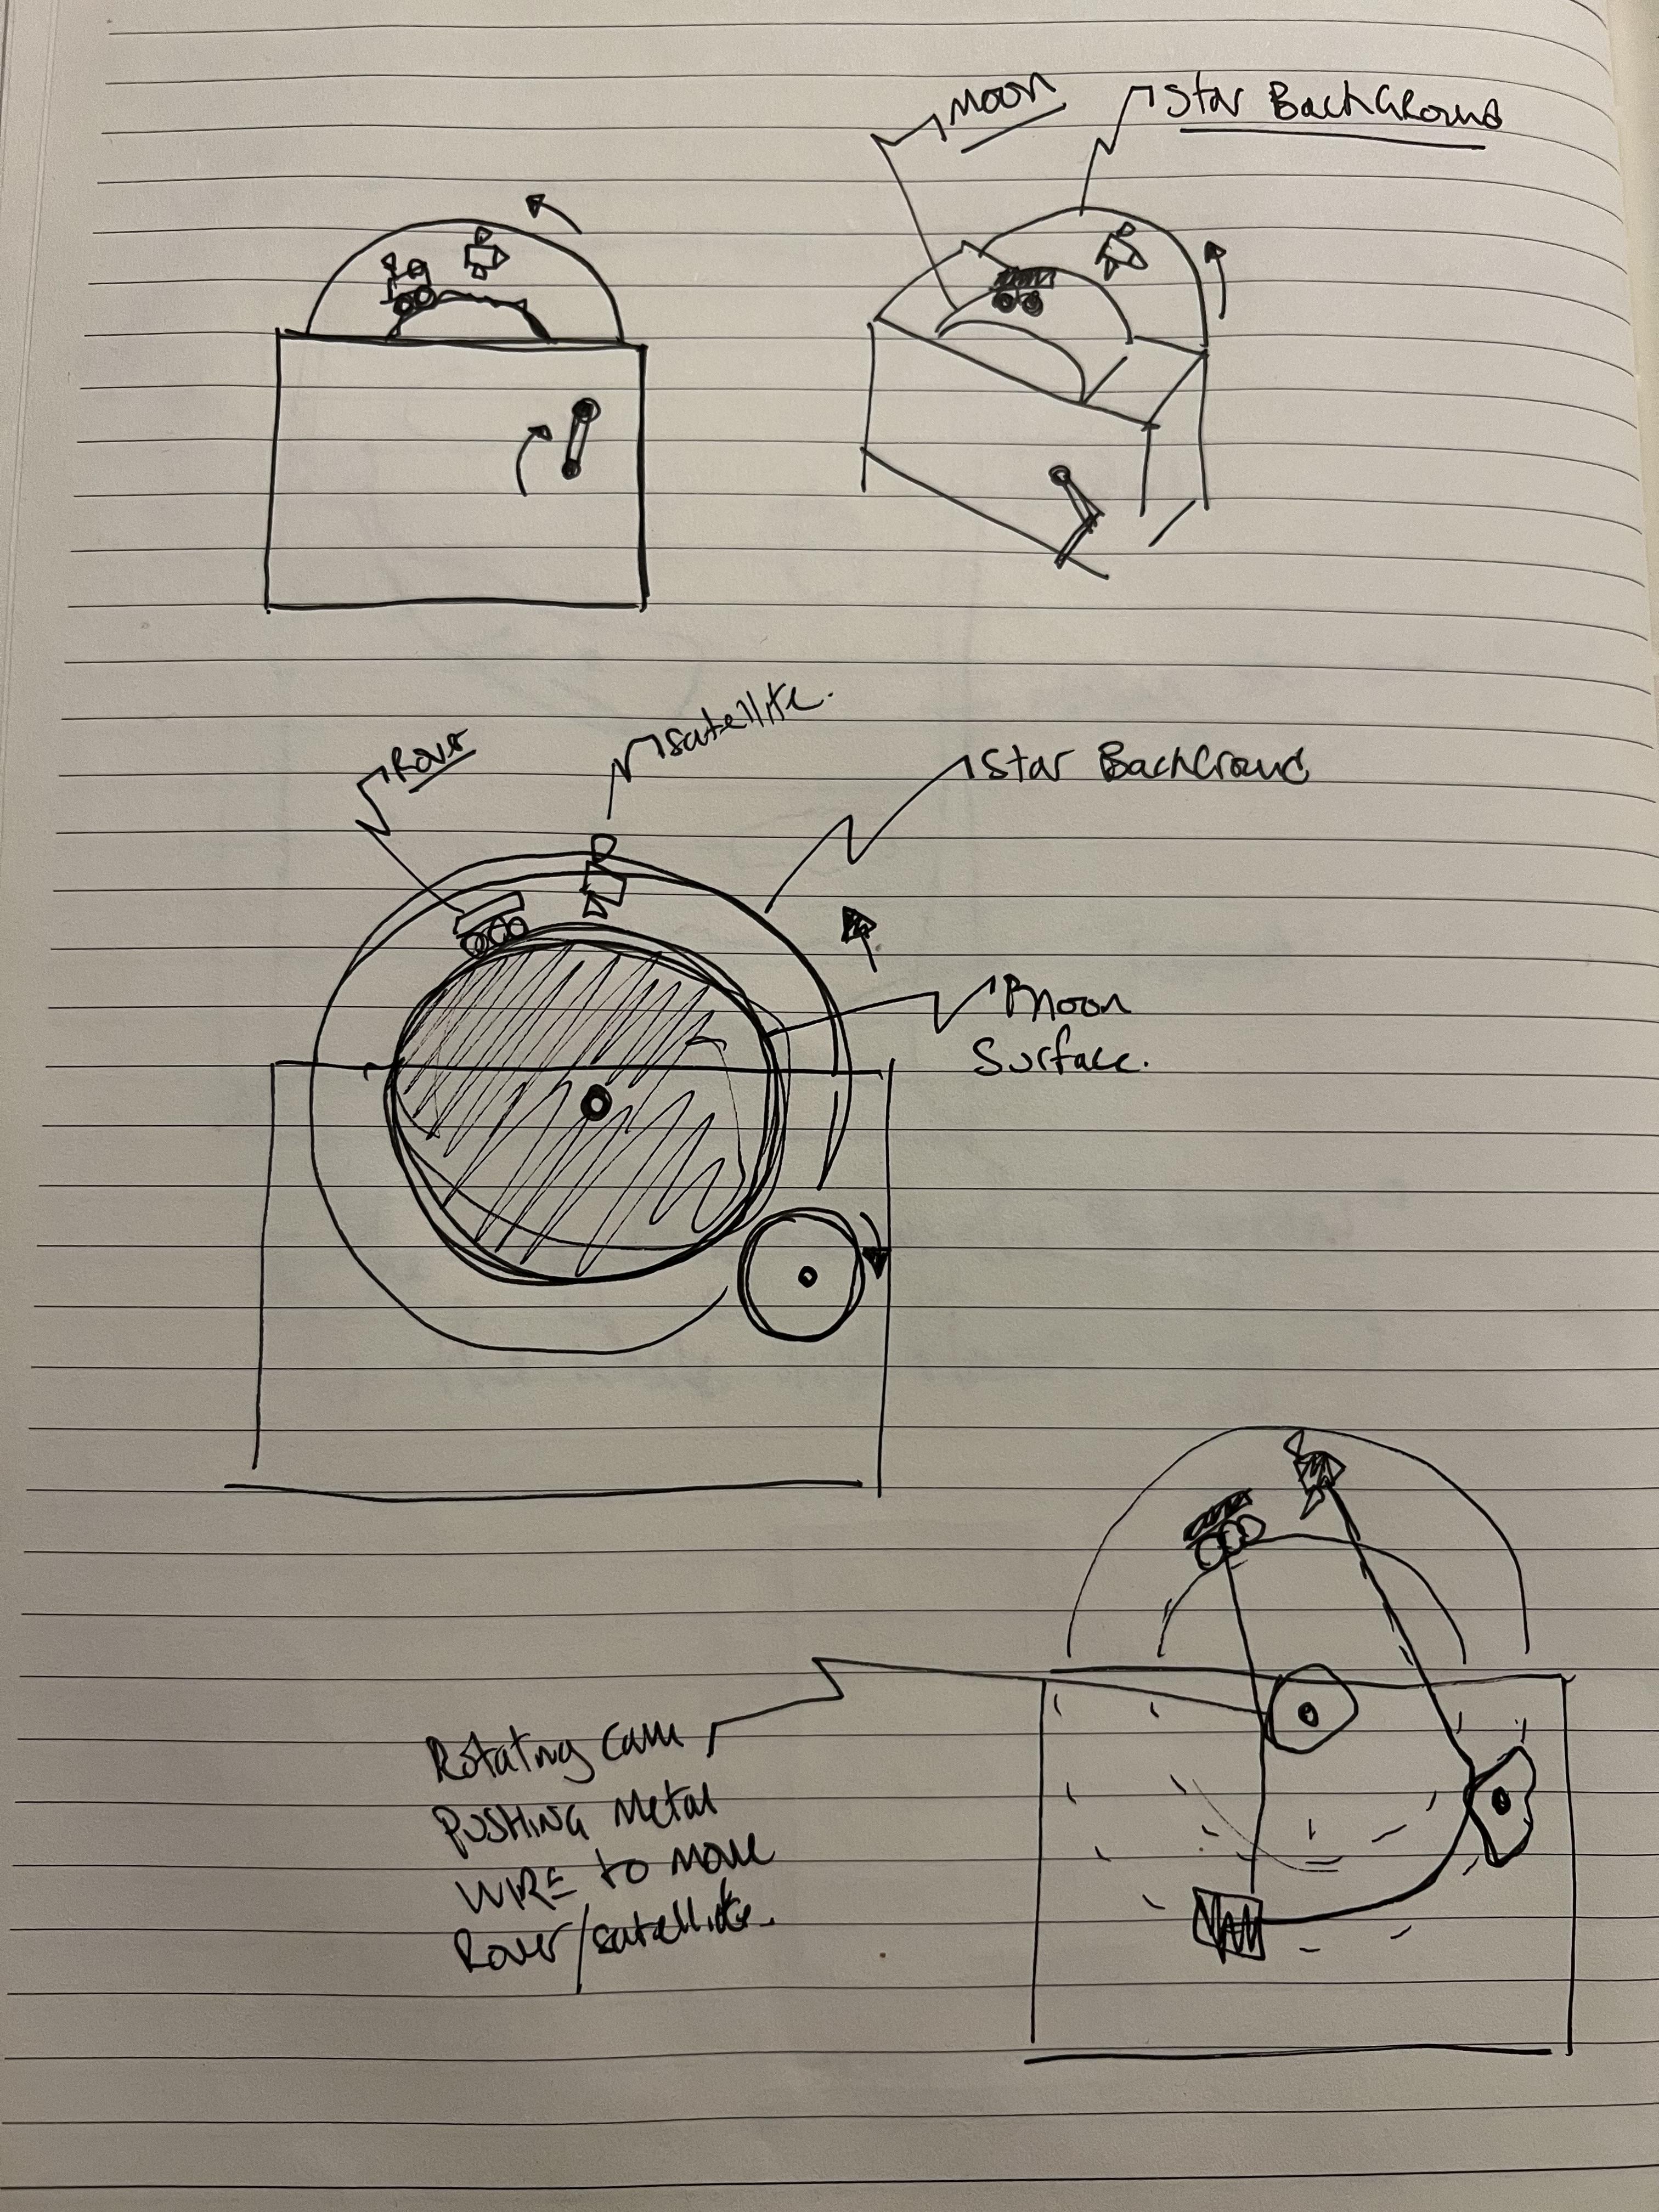 Moon
Star BackGround
Rover
satellite.
Star BackGround
Moon
Surface.
Rotating Cam
PUSHING Metal
WIRE to move
Rover/satellite.